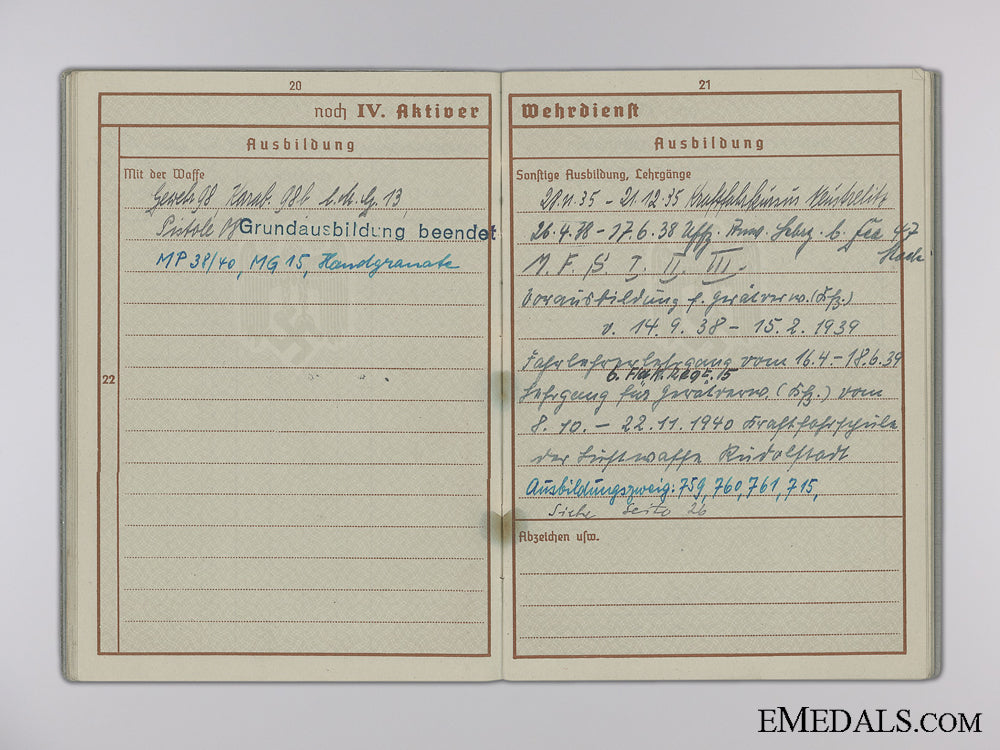 20
noch IV. Aktiver
Ausbildung
Mit der Waffe
Gewehr 98 Karab. 98b l.M.G. 13,
Pistole 08 Grundausbildung beendet
MP 38/40, MG 15, Handgranate
22
21
Wehrdienst
Ausbildung
Sonstige Ausbildung, Lehrgänge
29.11.35 – 21.12.35 Kraftfahrkursus Neustrelitz
26.4.38 – 17.6.38 Uffz. Anw. Lehrg. b.
M. F. S. I. II. III.
Vorausbildung f. Gerätverw. (Kfz.)
v. 14.9.38 – 15.2.1939
Fahrlehrerlehrgang vom 16.4. – 18.6.39
6. Flak. Regt. 15
Lehrgang für Gerätverw. (Kfz.) vom
8.10. – 22.11.1940 Kraftfahrschule
der Luftwaffe Rudolstadt
Ausbildungszweig: 759, 760, 761, 715,
Siehe Seite 26
Abzeichen usw.
EMEDALS.COM